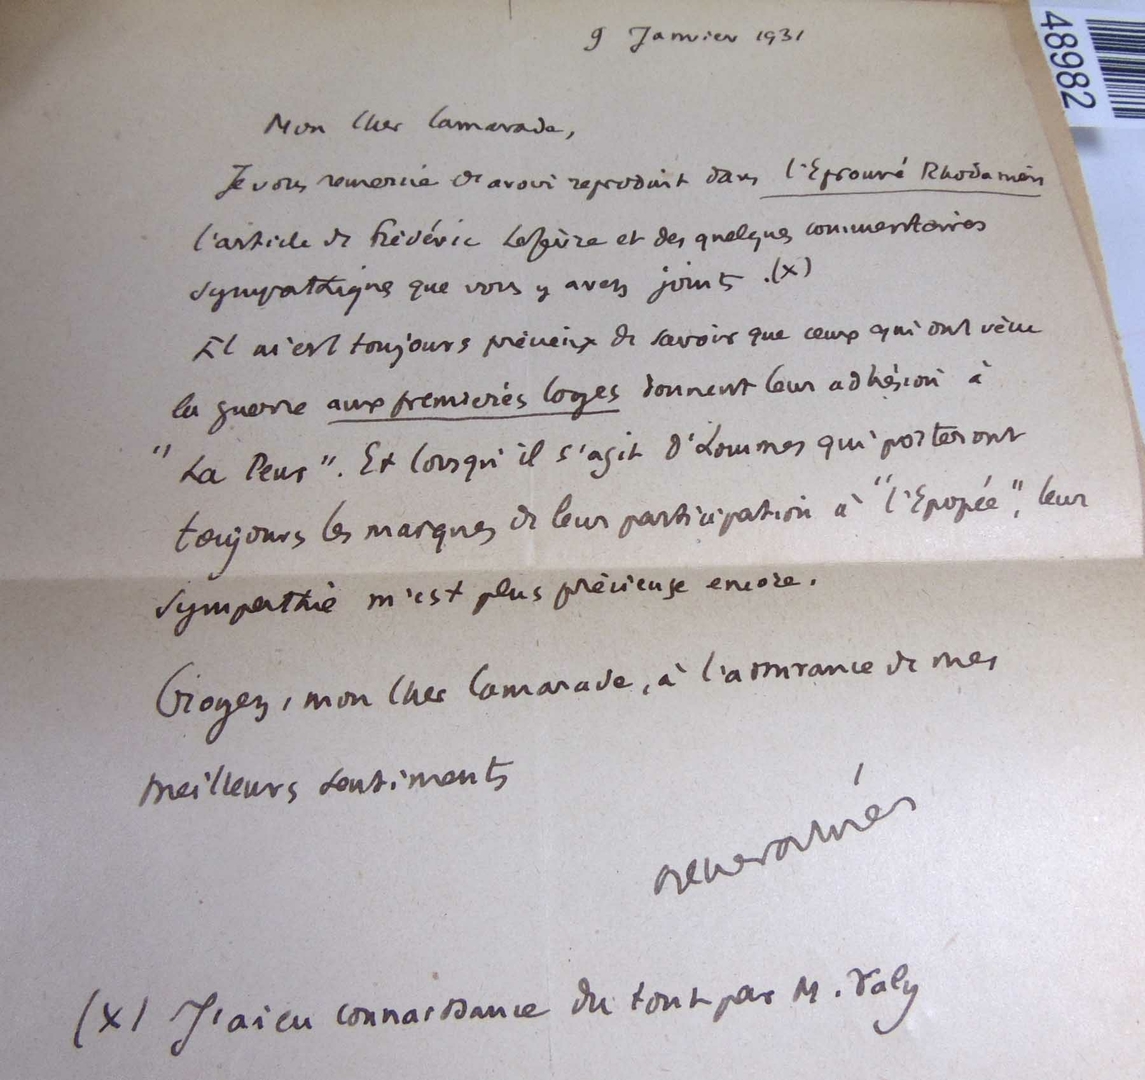 48982
9 Janvier 1931
Mon Cher Camarade,
Je vous remercie d'avoir reproduit dans l'Eprouvé Rhodanien
l'article de Frédéric Lefèvre et des quelques commentaires
sympathiques que vous y avez joints. (x)
Il m'est toujours précieux de savoir que ceux qui ont vécu
la guerre aux premières loges donnent leur adhésion à
"La Peur". Et lorsqu'il s'agit d'hommes qui porteront
toujours les marques de leur participation à "l'Epopée", leur
sympathie m'est plus précieuse encore.
Croyez, mon Cher Camarade, à l'assurance de mes
meilleurs sentiments
(x) J'ai eu connaissance du tout par M. Valy